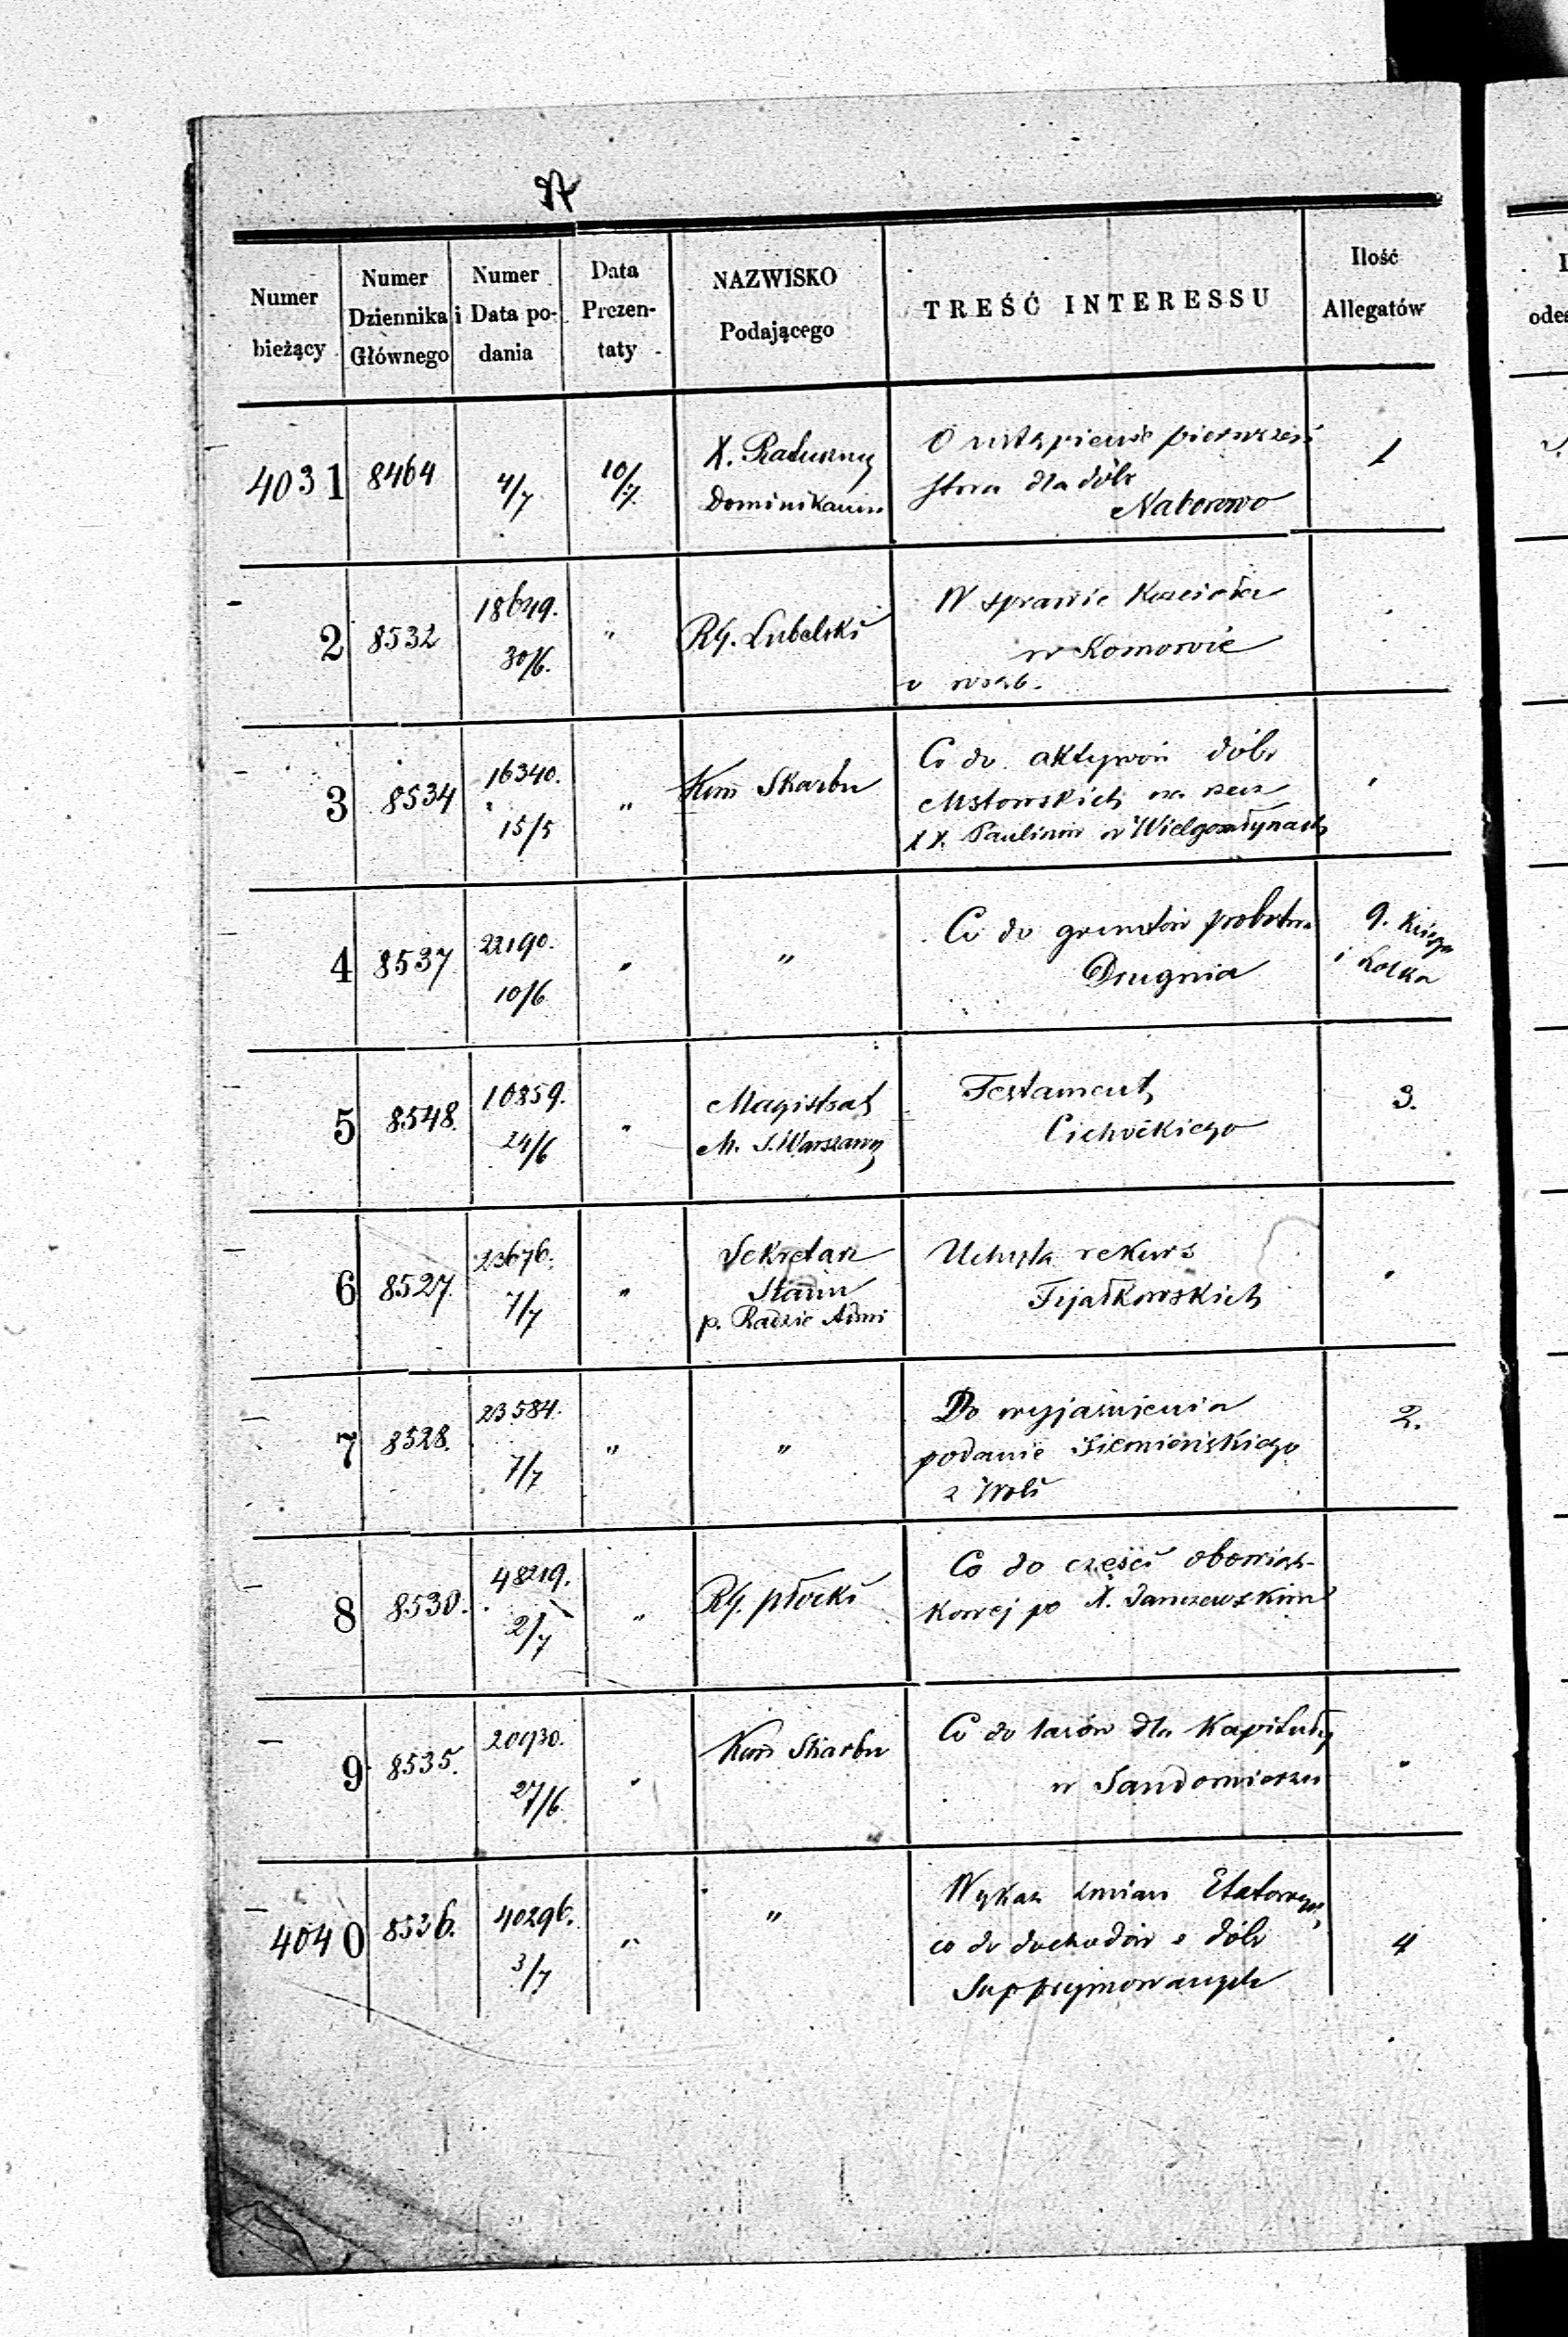 Numer bieżący
Numer Dziennika Głównego
Numer i Data podania
Data Prezentaty
NAZWISKO Podającego
TREŚĆ INTERESSU
Ilość Allegatów
4031
8464
4/7
10/7
X.
Dominikanin
O ustąpienie pierwszeń
stwa dla dóbr
Naborowo
1
2
8532
18649.
30/6.
"
RG. Lubelski
W sprawie Kościoła
w Komorowie
3
8534
16340.
15/5
"
Kom Skarbu
Co do aktywów dóbr
Mstowskich na rzecz
XX. Paulinów w Wielgomłynach
4
8537
22190.
10/6
"
"
Co do gruntów probostwa
Drugnia
9. Księga
i
5
8548.
10859.
24/6
"
Magistrat
M. S. Warszawy
Testament
Cichockiego
3.
6
8527.
23676.
7/7
"
Sekretarz
Stanu
p. Radzie Admi
Uchyla rekurs
Fijałkowskich
7
8528.
23584.
7/7
"
"
Do wyjaśnienia
podanie Siemieńskiego
z Woli
2.
8
8530.
48219.
2/7
"
RG. płocki
Co do części obowiąz-
kowej po X. Janczewskim
9
8535.
20930.
27/6.
"
Kom Skarbu
Co do lasów dla Kapituły
w Sandomierzu
4040
8536.
40296.
3/7
"
"
Wykaz zmian Etatowych
co do dochodów z dóbr
Supprymowanych
4